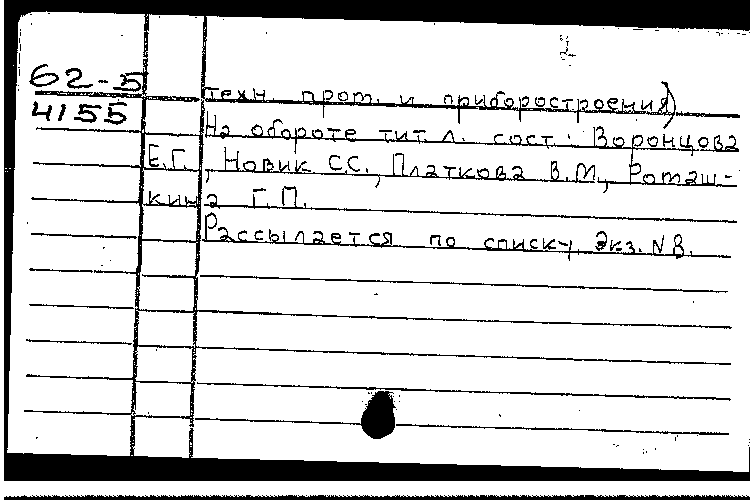 2
62-5
4155
техн. прот. и приборостроения)
На обороте тит. л. сост.: Воронцова
Е.Г., Новик С.С., Платкова В.М., Роташ-
кина Г.П.
Рассылается по списку. Экз. N В.